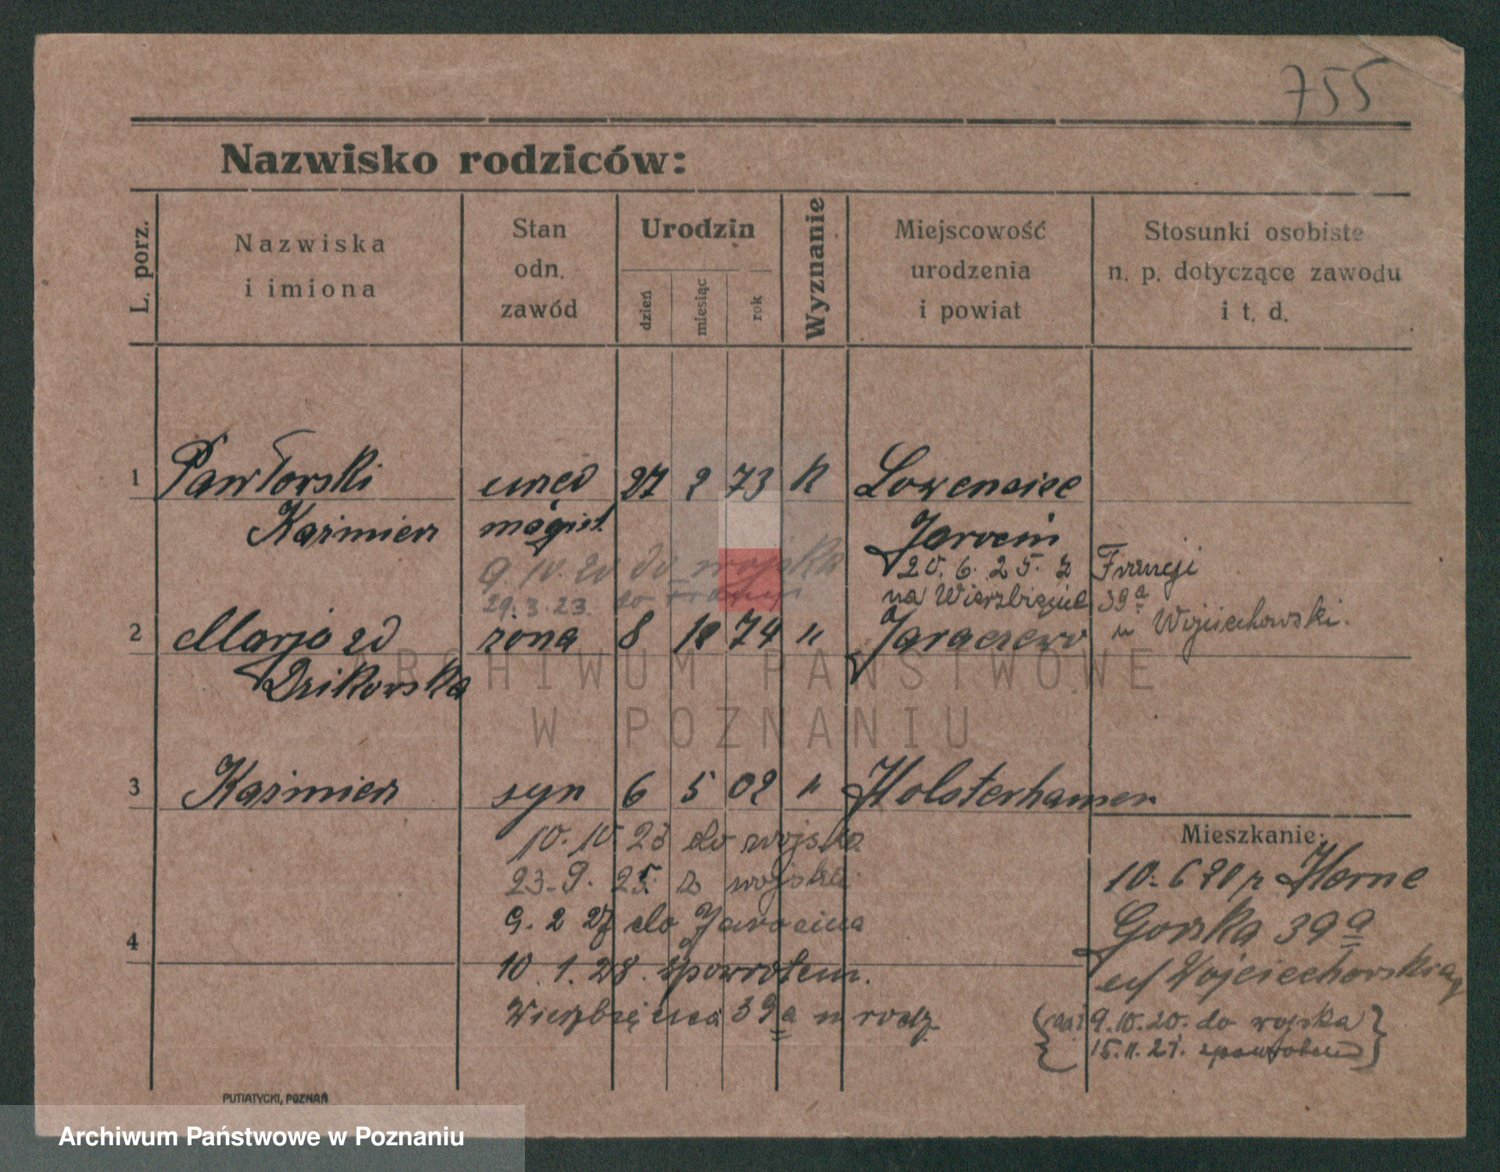 755
Nazwisko rodziców:
L. porz.
Nazwiska
i imiona
Stan
odn.
zawód
Urodzin
dzień
miesiąc
rok
Wyznanie
Miejscowość
urodzenia
i powiat
Stosunki osobiste
n. p. dotyczące zawodu
i t. d.
1 Pawłowski urzęd 27 2 73 k
Kaźmierz magist. Jarocin
9.10.20 do wojska 20.6.25. z Francji
29.3.23. do na Wierzbięcice 39a
u Wojciechowski.
2 Marja zd żona 8 74 " Jaraczewo
Dzikowska
ARCHIWUM PAŃSTWOWE
W POZNANIU
3 Kaźmierz syn 6 5 02 " Holsterhausen
10.10 23 do wojska
23.9.25. z wojska
9.2 27 do Jarocina
4
10.1.28. zpowrotem.
Wierzbięcice 39a u rodz.
Mieszkanie:
10.6 20 z Herne
Górska 39a
u/ Wojciechowskiego
9.10.20. do wojska
15.11.21. zpowrotem
PUTIATYCKI, POZNAŃ
Archiwum Państwowe w Poznaniu